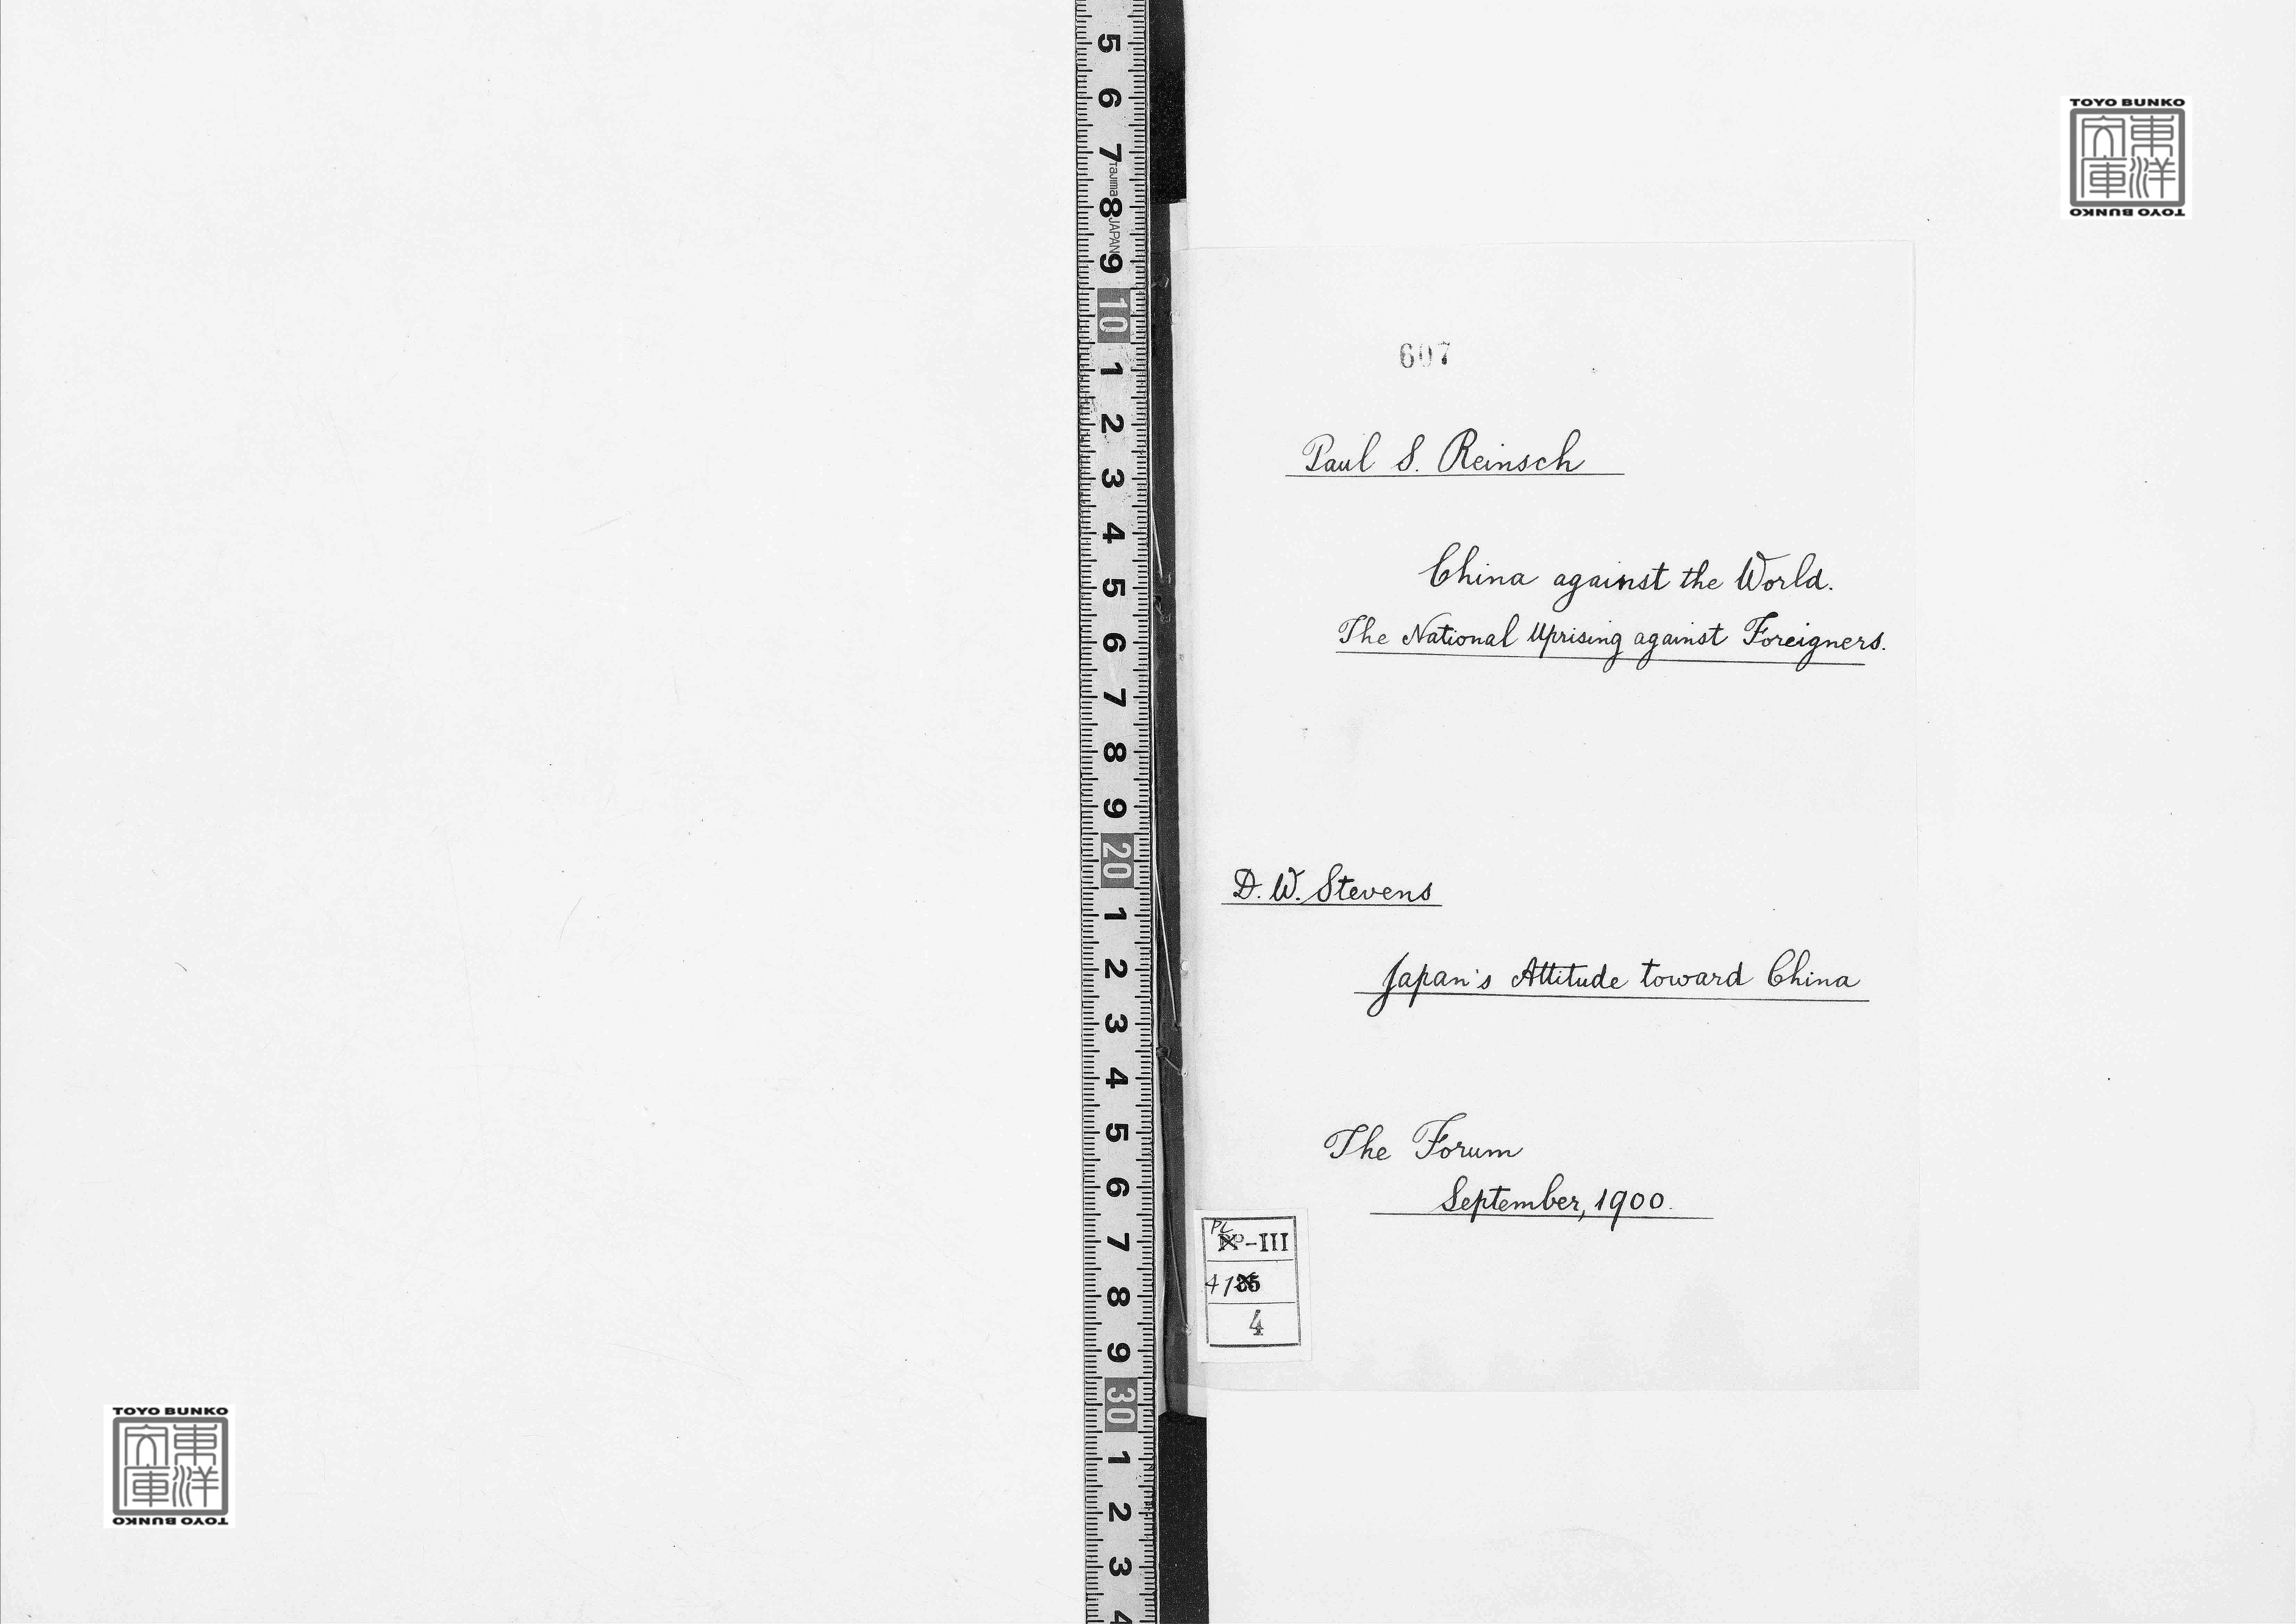 5
6
7
Tajima
8
JAPAN
9
10
1
2
3
4
5
6
7
8
9
20
1
2
3
4
5
6
7
8
9
30
1
2
3
4
TOYO BUNKO
東洋
文庫
TOYO BUNKO
607
Paul S. Reinsch
China against the World.
The National Uprising against Foreigners.
D. W. Stevens
Japan's Attitude toward China
The Forum
September, 1900.
PL
-III
41
4
TOYO BUNKO
東洋
文庫
TOYO BUNKO